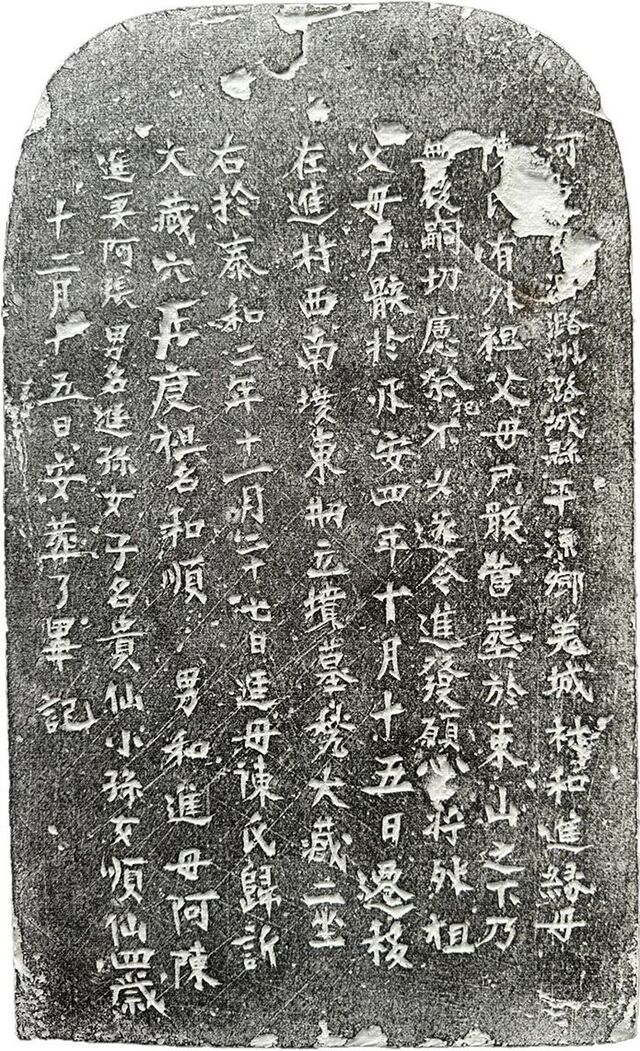 河潞州潞城縣平源鄉羌城村和進緣母
有外祖父母尸骸當葬於東山之下乃
嗣切慮祭祀不久遂令進發願心將外祖
父母尸骸於承安四年十月十五日遷移
在進村西南境東立墳墓甃大藏二坐
右於泰和二年十一月二十七日進母陳氏歸訴
大藏穴再庚祖名和順 男和進 母阿陳
進妻阿張男名進孫女子名貴仙小孫女順仙四歲
十二月十五日安葬了畢記